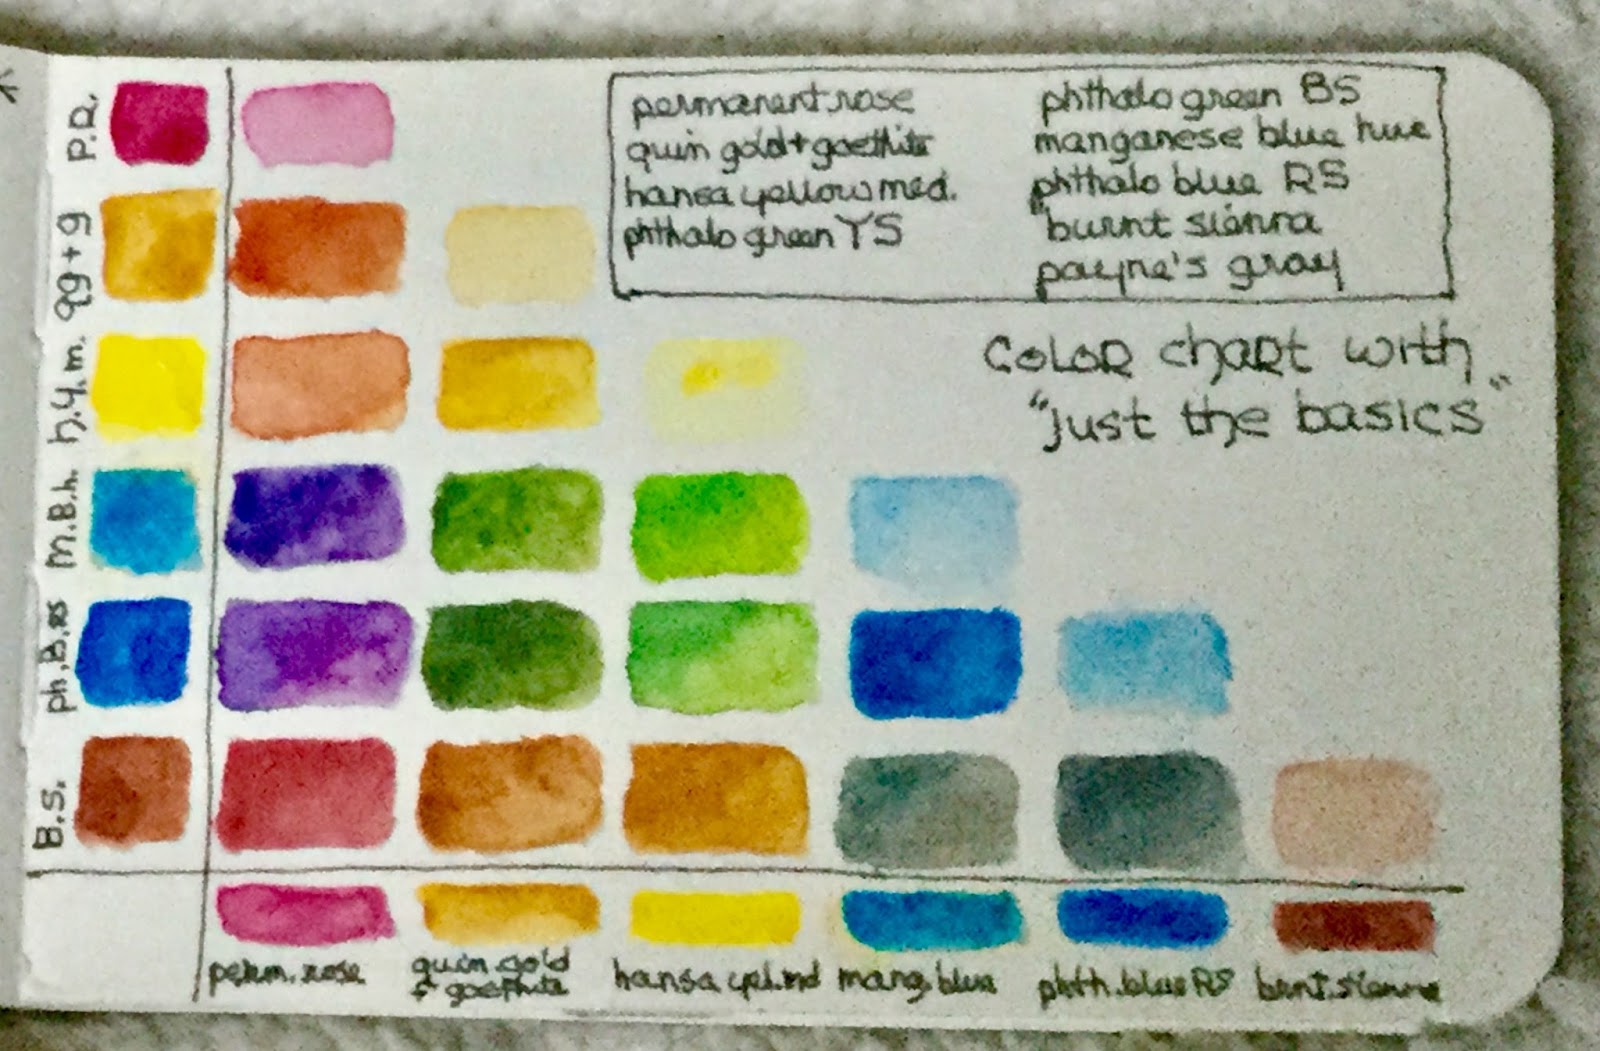 permanent rose
quin gold + goethite
hansa yellow med.
phthalo green YS
phthalo green BS
manganese blue hue
phthalo blue RS
burnt sienna
payne's gray
COLOR chART with
"just the basics"
P.R.
qg + g
h.y.m.
m.B.h.
ph.B.RS
B.S.
perm. rose
quin gold
+ goethite
hansa yel.md
mang. blue
phth. blue RS
burnt. sienna